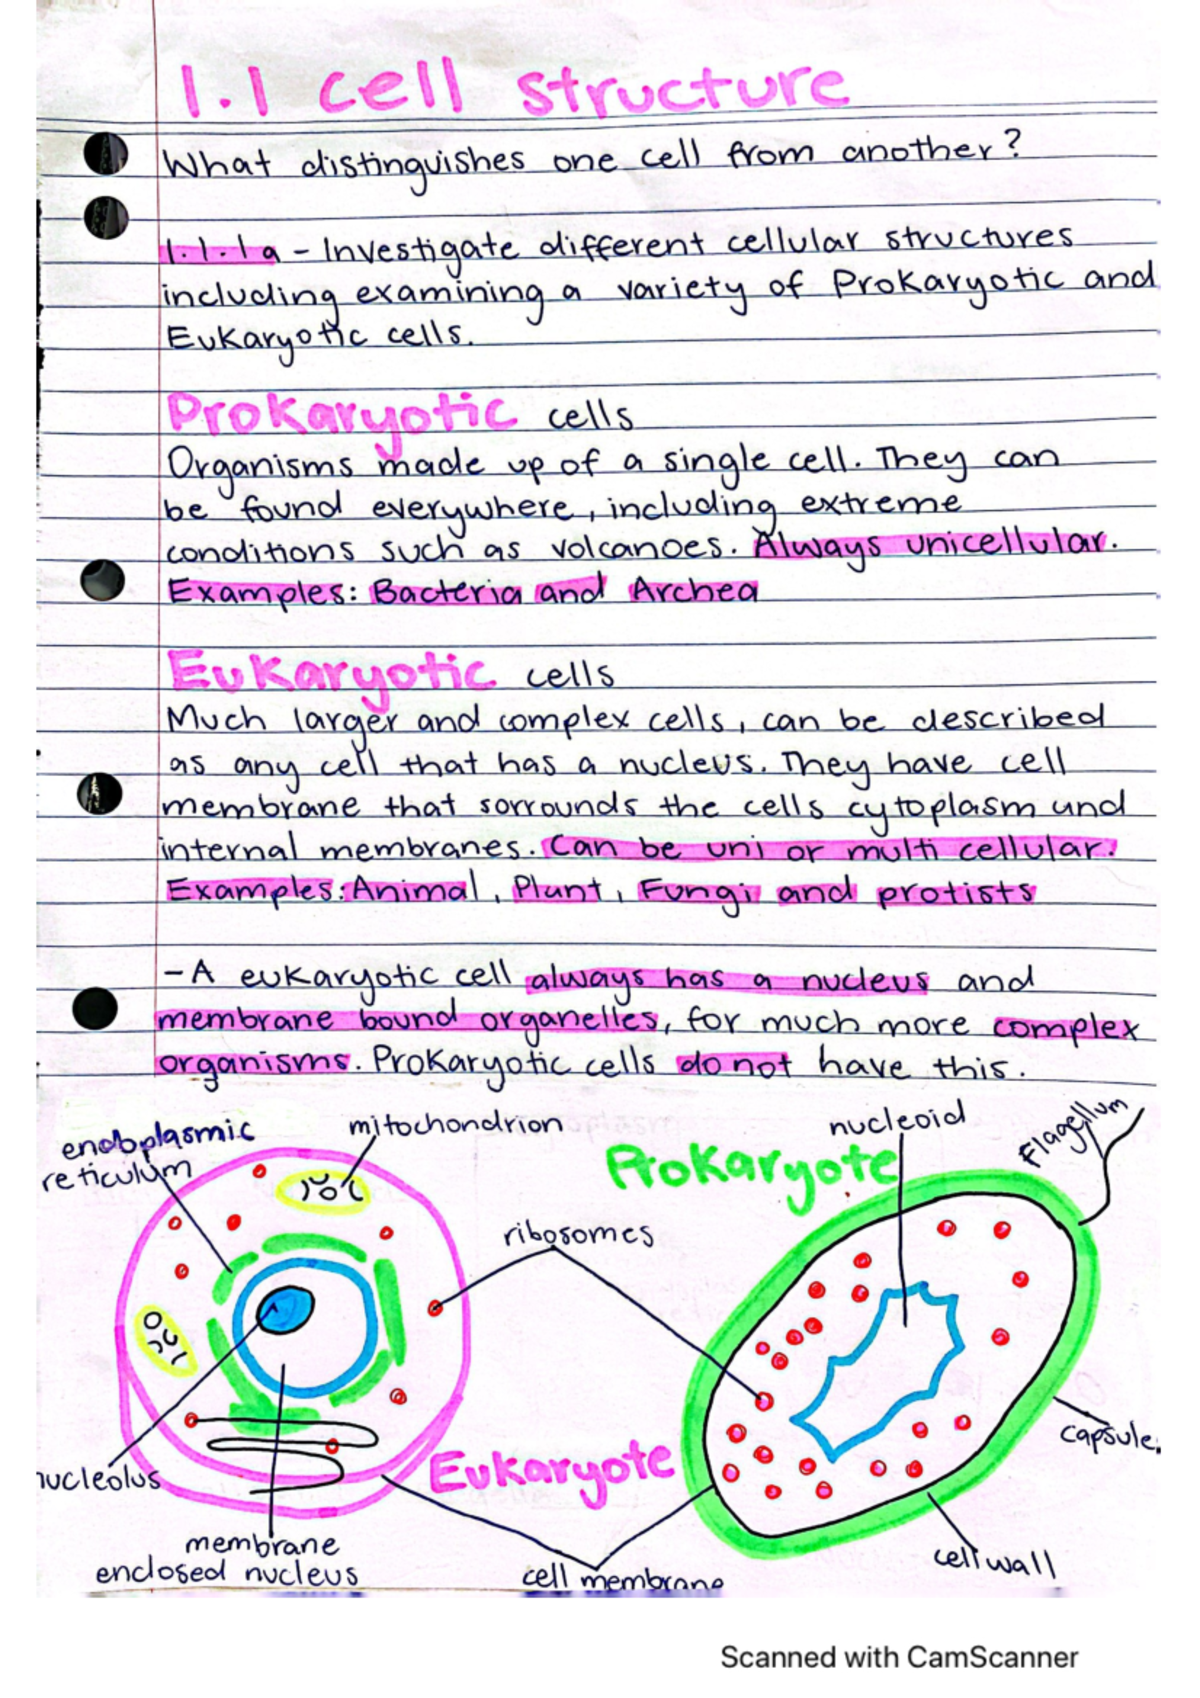 1.1 cell structure
What distinguishes one cell from another?
1.1.1a - Investigate different cellular structures
including examining a variety of Prokaryotic and
Eukaryotic cells.
Prokaryotic cells
Organisms made up of a single cell. They can
be found everywhere, including extreme
conditions such as volcanoes. Always unicellular.
Examples: Bacteria and Archea
Eukaryotic cells
Much larger and complex cells, can be described
as any cell that has a nucleus. They have cell
membrane that sorrounds the cells cytoplasm and
internal membranes. Can be uni or multi cellular.
Examples: Animal, Plant, Fungi and protists
- A eukaryotic cell always has a nucleus and
membrane bound organelles, for much more complex
organisms. Prokaryotic cells do not have this.
endoplasmic
reticulum
mitochondrion
nucleoid
Flagellum
Prokaryote
ribosomes
capsule
nucleolus
Eukaryote
membrane
enclosed nucleus
cell membrane
cell wall
Scanned with CamScanner